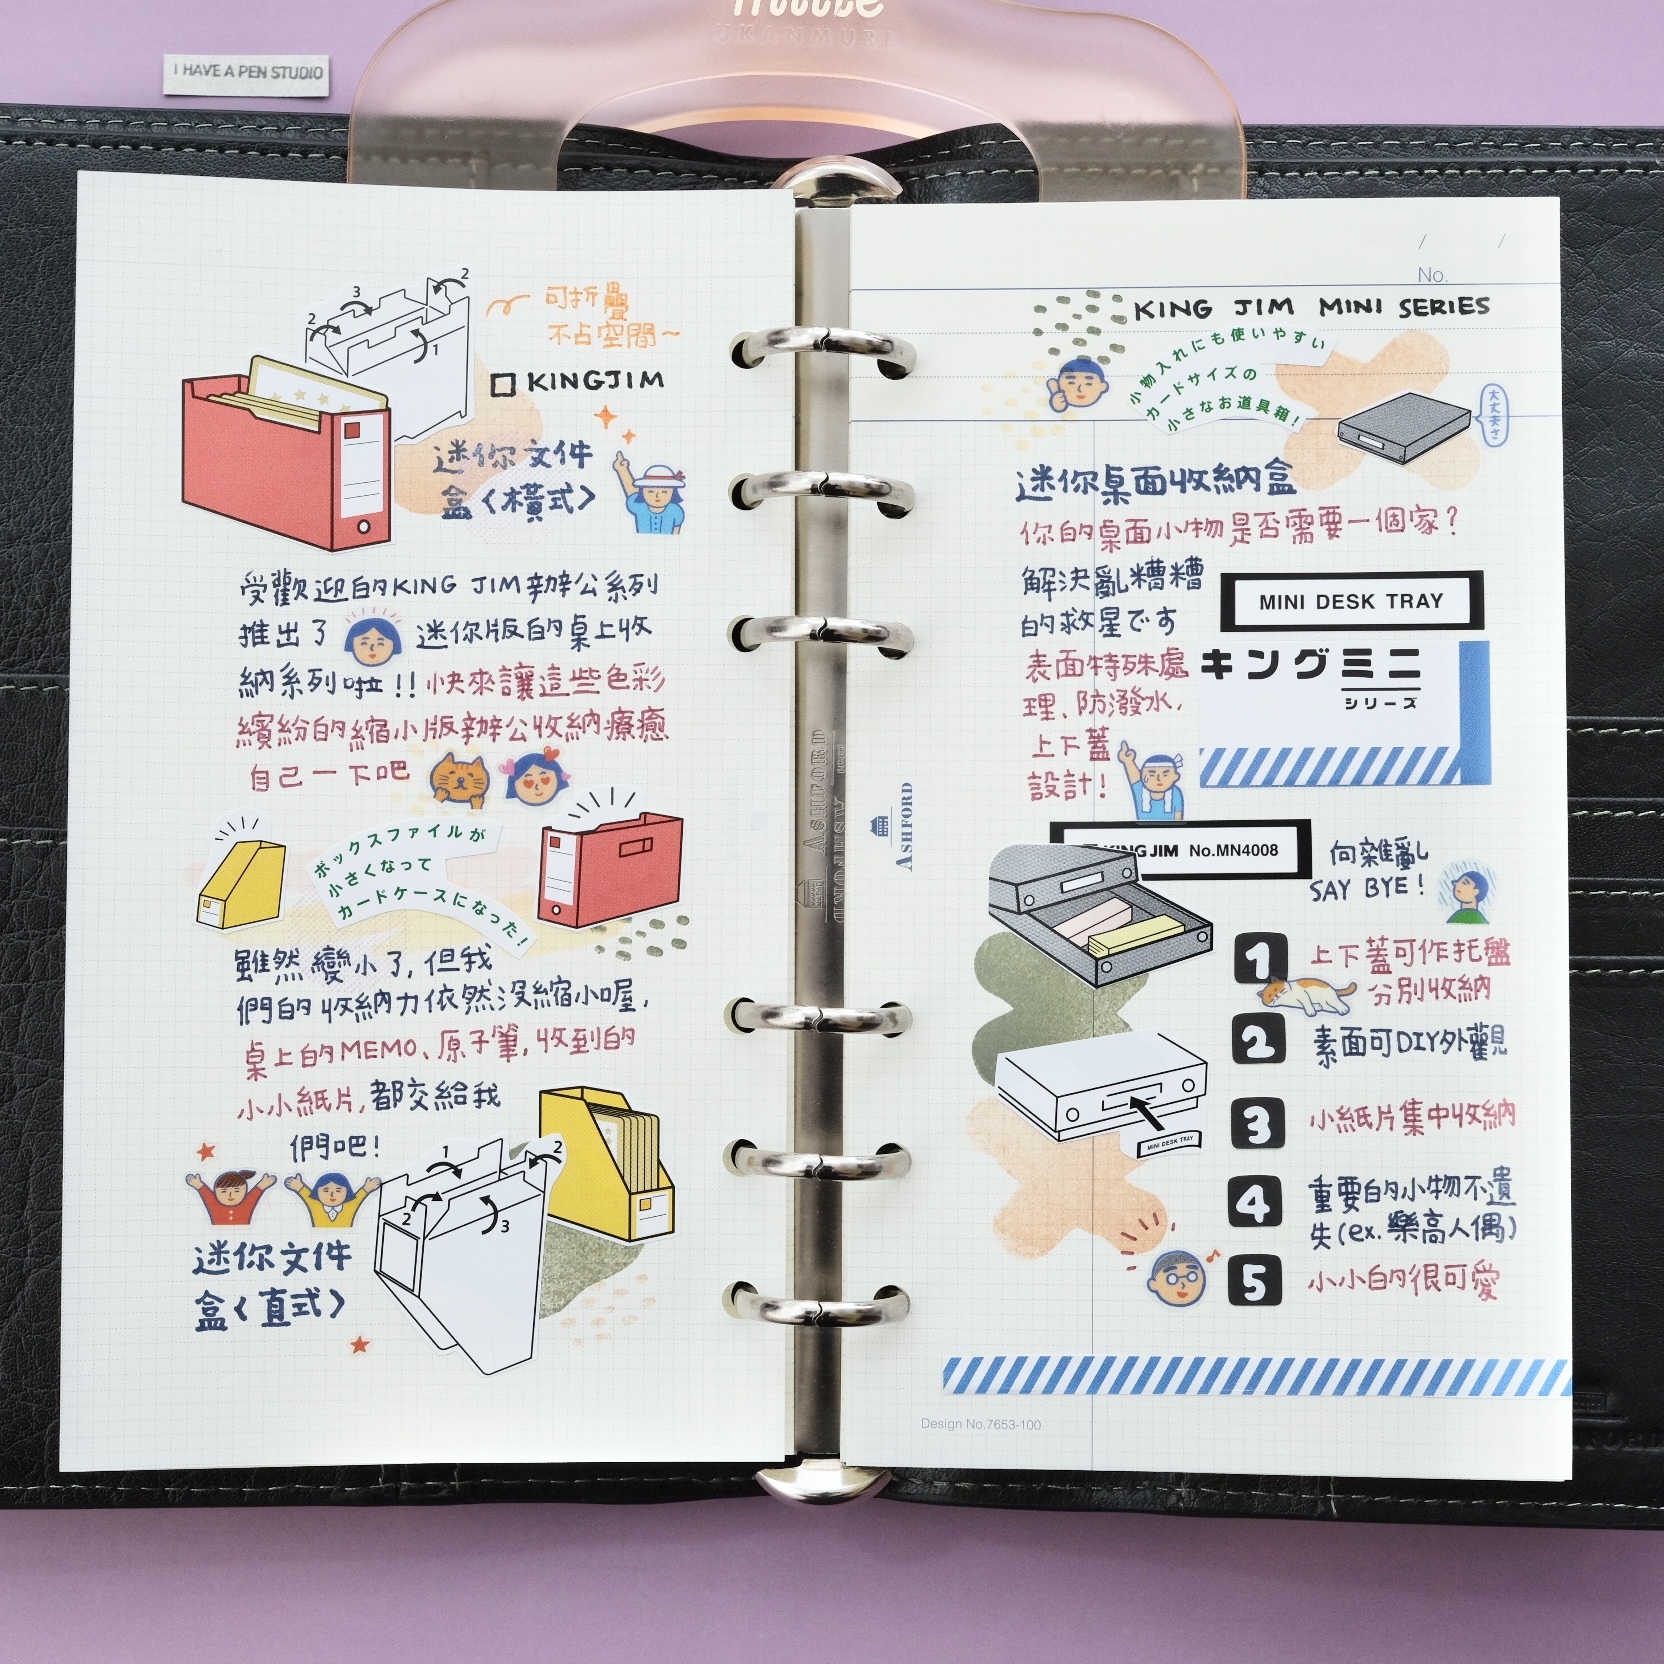 little
UKANMURI
I HAVE A PEN STUDIO
3
2
2
1
可折疊
不占空間~
KINGJIM
迷你文件
盒<橫式>
受歡迎的KING JIM辦公系列
推出了 迷你版的桌上收
納系列啦!!快來讓這些色彩
繽紛的縮小版辦公收納療癒
自己一下吧
ボックスファイルが
小さくなって
カードケースになった!
雖然變小了,但我
們的收納力依然沒縮小喔,
桌上的MEMO、原子筆,收到的
小小紙片,都交給我
們吧!
1
2
2
3
迷你文件
盒<直式>
ASHFORD
ASHFORD
ASHFORD
/ /
No.
KING JIM MINI SERIES
小物入れにも使いやすい
カードサイズの
小さなお道具箱!
迷你桌面收納盒
你的桌面小物是否需要一個家?
解決亂糟糟
的救星です
MINI DESK TRAY
表面特殊處
理、防潑水,
上下蓋
設計!
キングミニ
シリーズ
KING JIM No.MN4008
向雜亂
SAY BYE!
1 上下蓋可作托盤
分別收納
2 素面可DIY外觀
MINI DESK TRAY
3 小紙片集中收納
4 重要的小物不遺
失(ex.樂高人偶)
5 小小的很可愛
Design No.7653-100